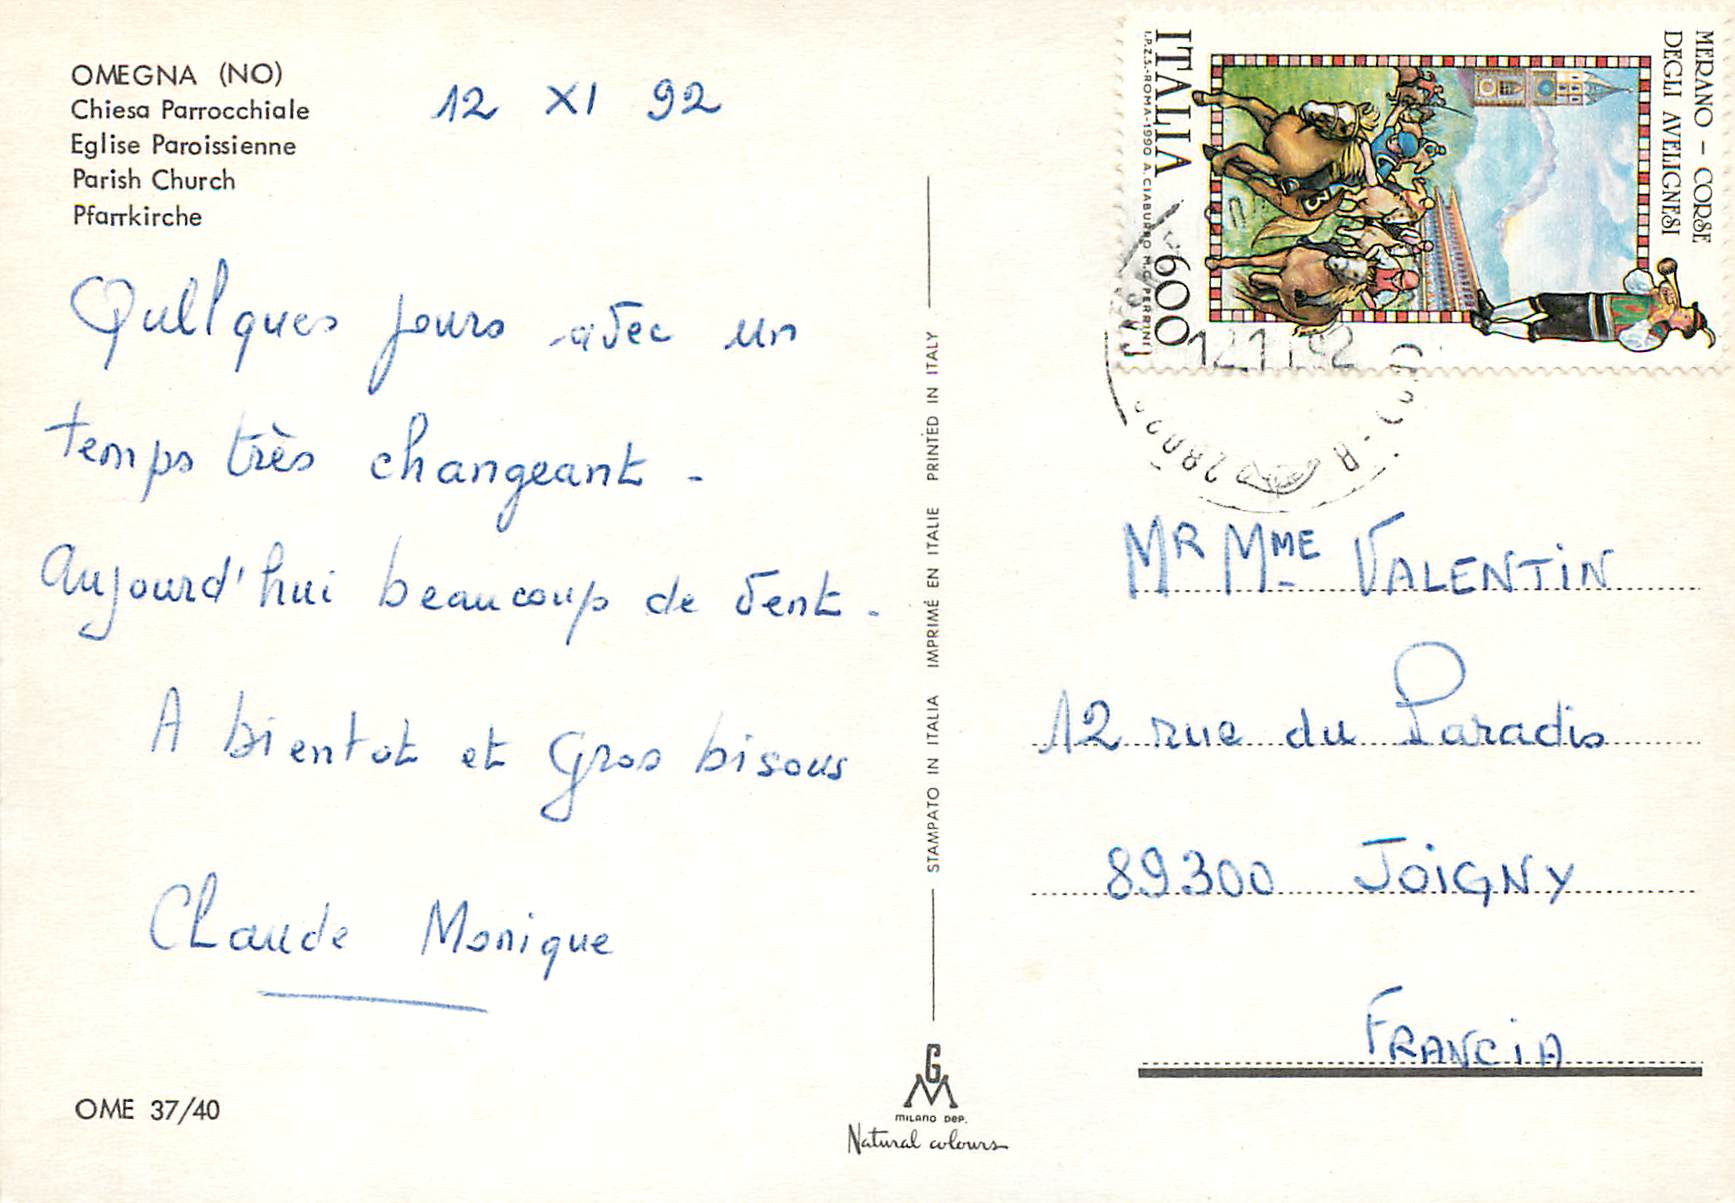 OMEGNA (NO)
Chiesa Parrocchiale
Eglise Paroissienne
Parish Church
Pfarrkirche
12 XI 92
Quelques jours avec un
temps très changeant -
Aujourd'hui beaucoup de vent -
A bientot et Gros bisous
Claude Monique
OME 37/40
STAMPATO IN ITALIA IMPRIMÉ EN ITALIE PRINTED IN ITALY
GM
MILANO DEP.
Natural colours
MERANO - CORSE
DEGLI AVELIGNESI
ITALIA 600
I.P.Z.S.-ROMA-1990 A. CIABURRO M.C. PERRINI
MR MME VALENTIN
12 rue du Paradis
89300 JOIGNY
FRANCIA